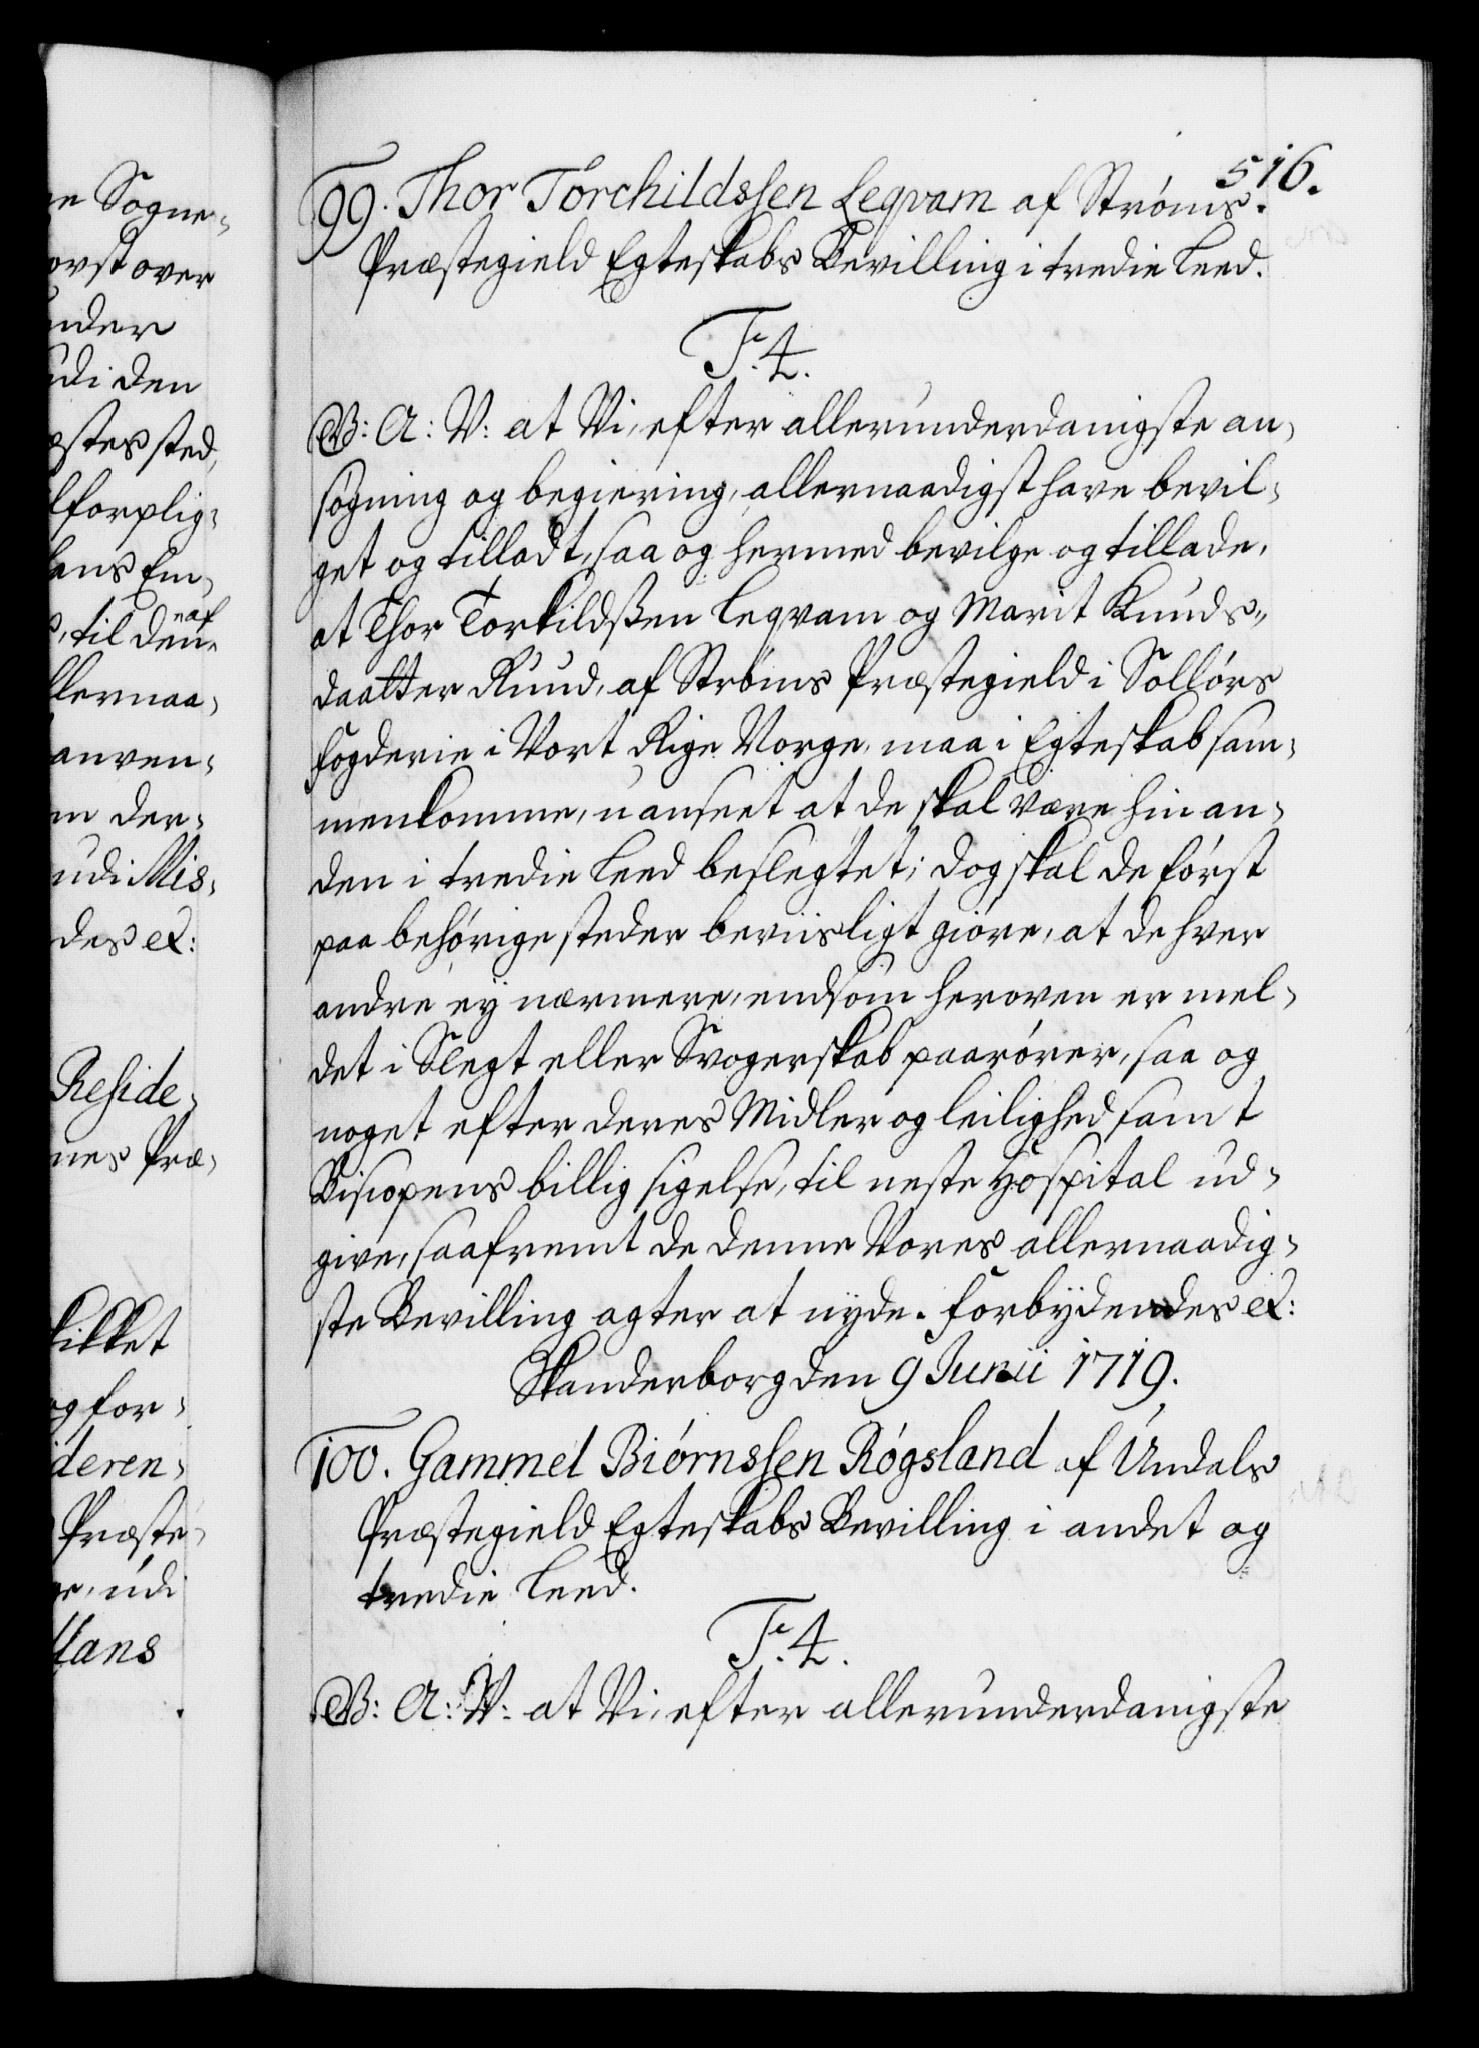 ne Sogne-
orst over
under
udi den
æstes sted,
lforplig-
hans Em,
til den
naf
llernaa,
anven-
m der-
udi Mis-
des etc:
Reside-
nes Præ-
likket
og for-
deren-
Præste-
udi
Hans
516.
99. Thor Torchildssen Leqvam af Strøms-
Præstegield Egteskabs Bevilling i tredie Leed.
F. 4.
G.B: A: V: at Vi, efter allerunderdanigste an-
søgning og begiering, allernaadigst have bevil-
get og tilladt, saa og hermed bevilge og tillade,
at Thor Torkildßen Leqvam og Marit Knuds-
daatter Ruud, af Strøms Præstegield i Sollørs
fogderie i Vort Rige Norge, maa i Egteskab sam-
menkomme, uanseet at de skal være hinan-
den i tredie Leed beslegtet; dog skal de først
paa behørige steder beviisligt giøre, at de hver
andre ey nærmere, end som heroven er mel-
det i Slegt eller Svogerskab paarører, saa og
noget efter deres Midler og leilighed samt
Bisiopens billig sigelse, til neste Hospital ud-
give, saafremt de denne Vores allernaadig-
ste Bevilling agter at nyde. Forbydendes etc:
Skanderborg den 9 Junii 1719.
100. Gammel Biørnssen Røgsland af Undals
Præstegield Egteskabs Bevilling i andet og
tredie Leed.
F. 4.
G.B: A: V: at Vi, efter allerunderdanigste